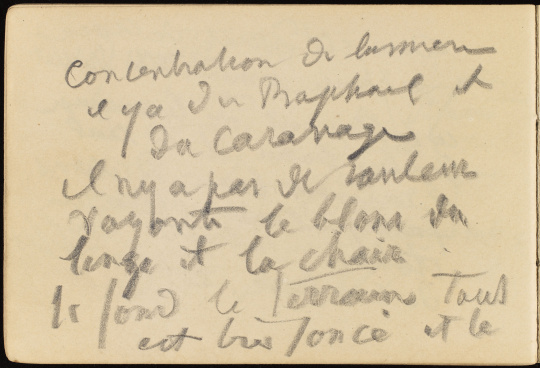 Concentration de lumiere
il y a du Raphael et
du Caravage
il n'y a pas de couleurs
voyante le blanc du
linge et la chair
le fond le terrain tout
est très foncé et le